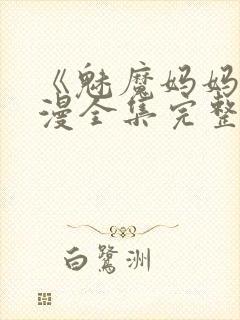 《魅魔妈妈
漫全集完整
白鹭洲